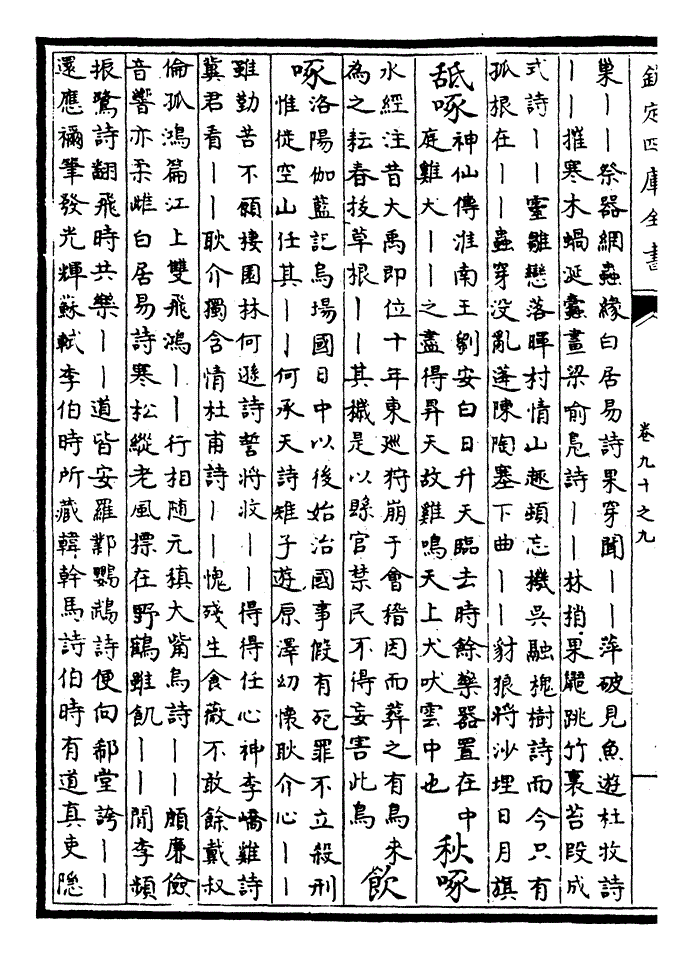 欽定四庫全書
卷九十之九
巢｜｜祭器網蟲緣白居易詩果穿聞｜｜萍破見魚遊杜牧詩
｜｜摧寒木蝸涎蠧畫梁喻鳬詩｜｜林捎果鼯跳竹裏苔段成
式詩｜｜靈雛戀落暉村情山趣頓忘機吳融槐樹詩而今只有
孤根在｜｜蟲穿没亂蓬陳陶塞下曲｜｜豺狼將沙埋日月旗
舐啄
神仙傳淮南王劉安白日升天臨去時餘藥器置在中
庭雞犬｜｜之盡得昇天故雞鳴天上犬吠雲中也
秋啄
水經注昔大禹即位十年東廵狩崩于會稽因而葬之有鳥來
為之耘春抜草根｜｜其穢是以縣官禁民不得妄害此鳥
飲
啄
洛陽伽藍記烏塲國日中以後始治國事假有死罪不立殺刑
惟徙空山任其｜｜何承天詩雉子遊原澤幼懷耿介心｜｜
雖勤苦不願棲園林何遜詩誓將收｜｜得得任心神李嶠雞詩
冀君看｜｜耿介獨含情杜甫詩｜｜愧殘生食薇不敢餘戴叔
倫孤鴻篇江上雙飛鴻｜｜行相随元稹大觜烏詩｜｜頗廉儉
音響亦柔雌白居易詩寒松縱老風標在野鶴雖飢｜｜閒李頻
振鷺詩翻飛時共樂｜｜道皆安羅鄴鸚鵡詩便向郗堂誇｜｜
還應禰筆發光輝蘇軾李伯時所藏韓幹馬詩伯時有道真吏隠